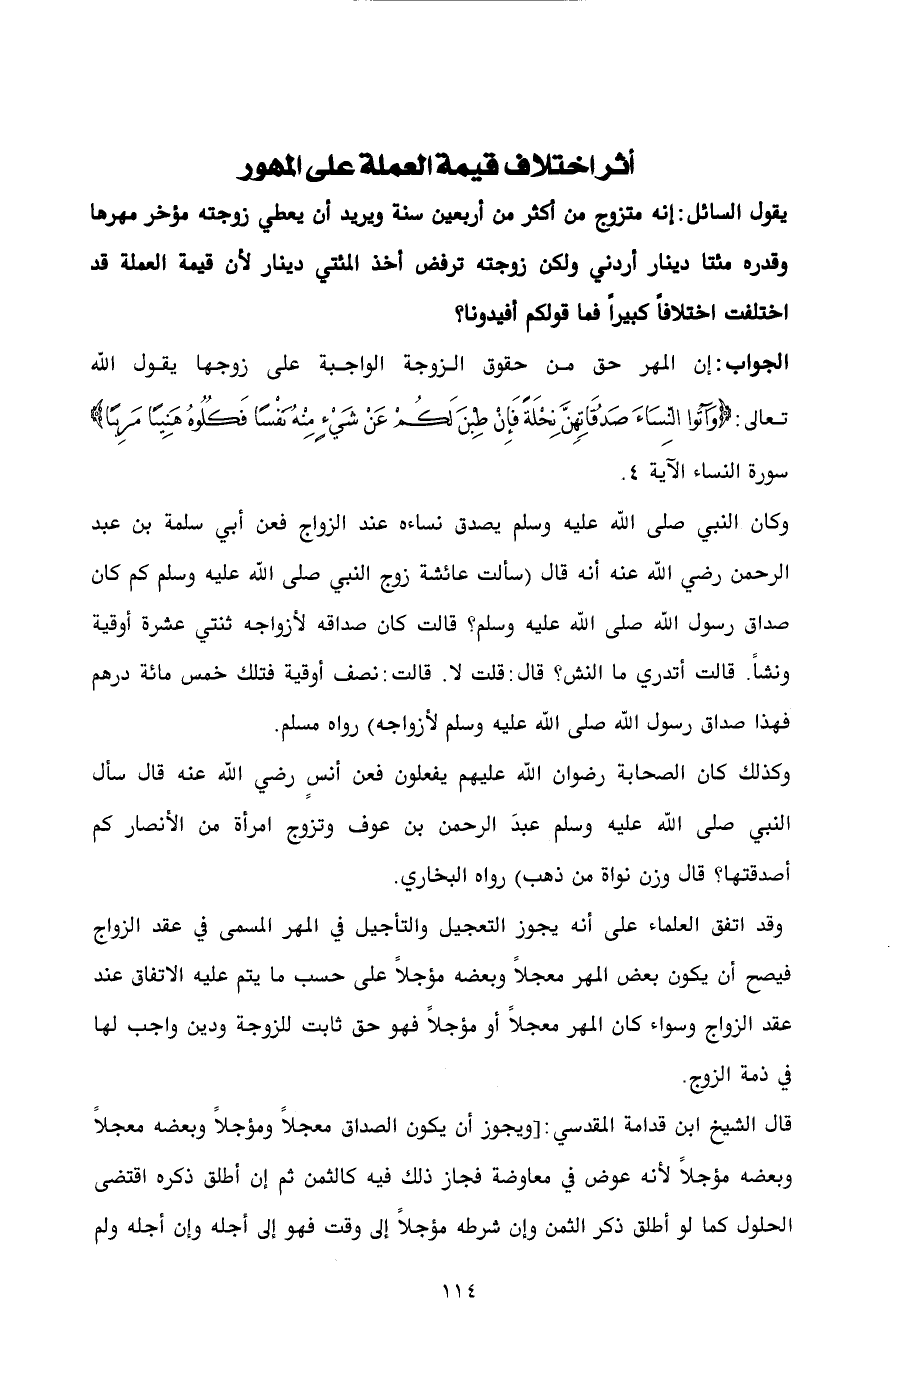 أثر اختلاف قيمة العملة على المهور
يقول السائل: إنه متزوج من أكثر من أربعين سنة ويريد أن يعطي زوجته مؤخر مهرها
وقدره مئتا دينار أردني ولكن زوجته ترفض أخذ المئتي دينار لأن قيمة العملة قد
اختلفت اختلافاً كبيراً فما قولكم أفيدونا؟
الجواب: إن المهر حق من حقوق الزوجة الواجبة على زوجها يقول الله
تعالى: ﴿وَآتُوا النِّسَاءَ صَدُقَاتِهِنَّ نِحْلَةً فَإِنْ طِبْنَ لَكُمْ عَنْ شَيْءٍ مِنْهُ نَفْسًا فَكُلُوهُ هَنِيئًا مَرِيئًا﴾
سورة النساء الآية ٤.
وكان النبي صلى الله عليه وسلم يصدق نساءه عند الزواج فعن أبي سلمة بن عبد
الرحمن رضي الله عنه أنه قال (سألت عائشة زوج النبي صلى الله عليه وسلم كم كان
صداق رسول الله صلى الله عليه وسلم؟ قالت كان صداقه لأزواجه ثنتي عشرة أوقية
ونشاً. قالت أتدري ما النش؟ قال: قلت لا. قالت: نصف أوقية فتلك خمس مائة درهم
فهذا صداق رسول الله صلى الله عليه وسلم لأزواجه) رواه مسلم.
وكذلك كان الصحابة رضوان الله عليهم يفعلون فعن أنسٍ رضي الله عنه قال سأل
النبي صلى الله عليه وسلم عبدَ الرحمن بن عوف وتزوج امرأة من الأنصار كم
أصدقتها؟ قال وزن نواة من ذهب) رواه البخاري.
وقد اتفق العلماء على أنه يجوز التعجيل والتأجيل في المهر المسمى في عقد الزواج
فيصح أن يكون بعض المهر معجلاً وبعضه مؤجلاً على حسب ما يتم عليه الاتفاق عند
عقد الزواج وسواء كان المهر معجلاً أو مؤجلاً فهو حق ثابت للزوجة ودين واجب لها
في ذمة الزوج.
قال الشيخ ابن قدامة المقدسي: [ويجوز أن يكون الصداق معجلاً ومؤجلاً وبعضه معجلاً
وبعضه مؤجلاً لأنه عوض في معاوضة فجاز ذلك فيه كالثمن ثم إن أطلق ذكره اقتضى
الحلول كما لو أطلق ذكر الثمن وإن شرطه مؤجلاً إلى وقت فهو إلى أجله وإن أجله ولم
١١٤